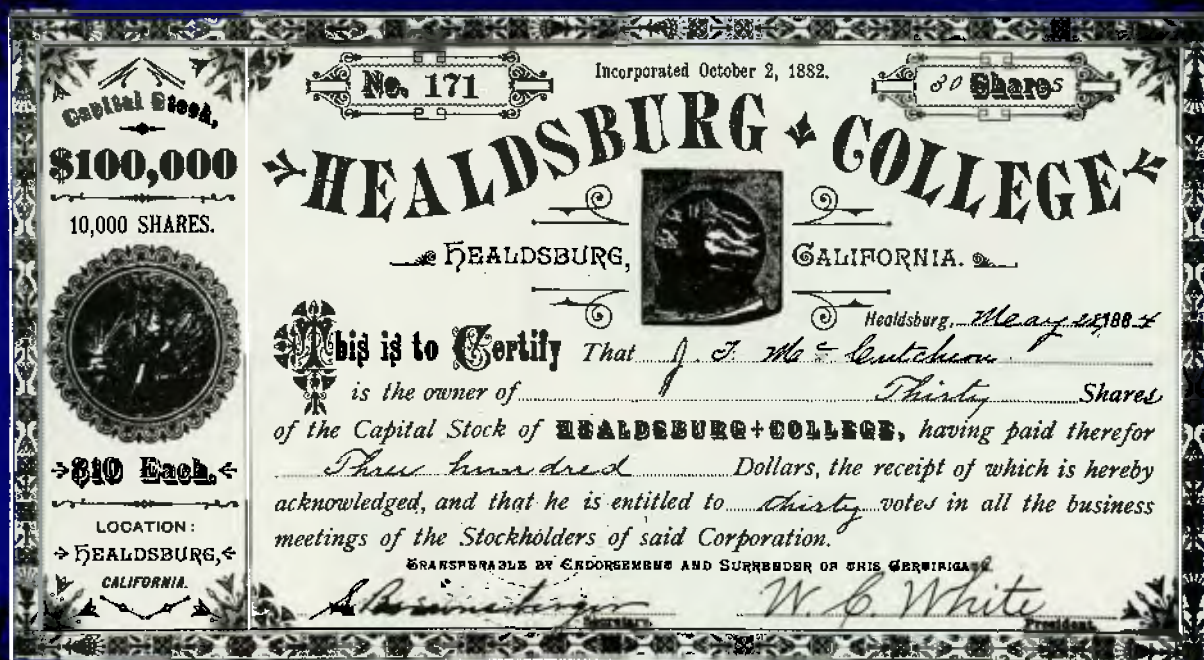 Capital Stock,
$100,000
10,000 SHARES.
$10 Each.
LOCATION:
HEALDSBURG,
CALIFORNIA.
No. 171
Incorporated October 2, 1882.
30 Shares
HEALDSBURG COLLEGE
HEALDSBURG, CALIFORNIA.
Healdsburg, May 1884
This is to Certify That J. T. Mc Cutcheon
is the owner of Thirty Shares
of the Capital Stock of HEALDSBURG+COLLEGE, having paid therefor
Three hundred Dollars, the receipt of which is hereby
acknowledged, and that he is entitled to thirty votes in all the business
meetings of the Stockholders of said Corporation.
TRANSFERABLE BY ENDORSEMENT AND SURRENDER OF THIS CERTIFICATE
S. Brownsberger W. C. White
Secretary. President.